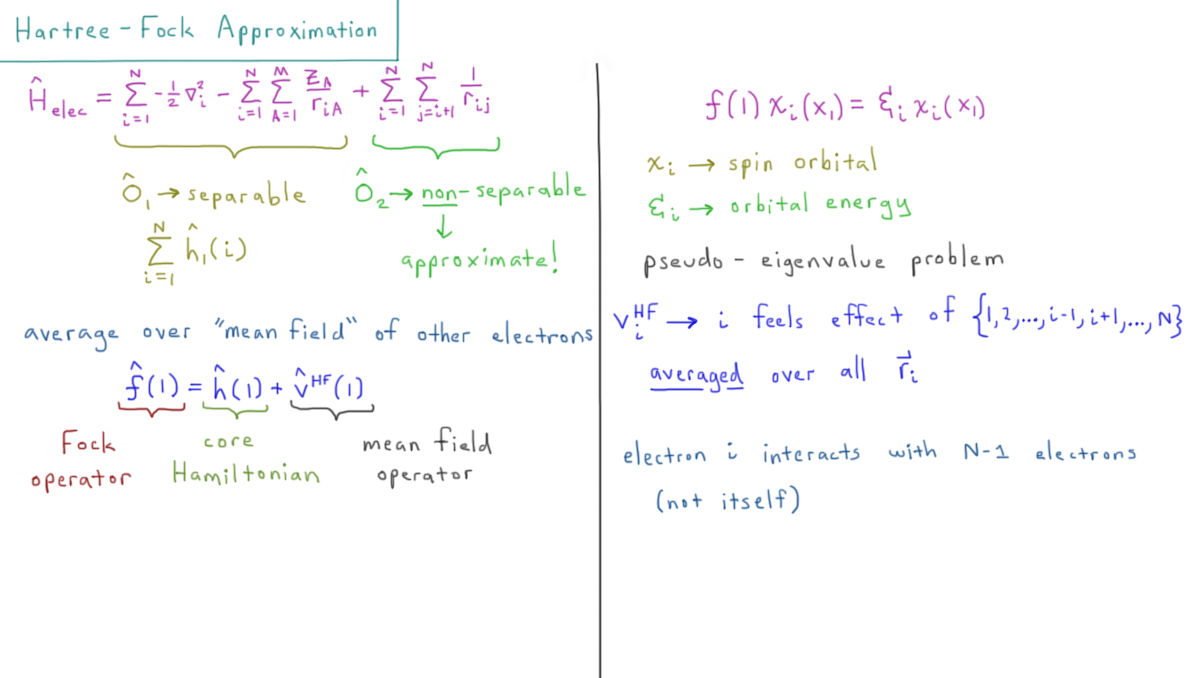 Hartree - Fock Approximation
Ĥ_elec = ∑_{i=1}^{N} -½ ∇_i² - ∑_{i=1}^{N} ∑_{A=1}^{M} Z_A/r_{iA} + ∑_{i=1}^{N} ∑_{j=i+1}^{N} 1/r_{ij}
Ô₁ → separable
∑_{i=1}^{N} ĥ₁(i)
Ô₂ → non-separable
↓
approximate!
average over "mean field" of other electrons
f̂(1) = ĥ(1) + v̂^{HF}(1)
Fock operator
core Hamiltonian
mean field operator
f(1) χ_i(x₁) = ℰ_i χ_i(x₁)
χ_i → spin orbital
ℰ_i → orbital energy
pseudo - eigenvalue problem
v_i^{HF} → i feels effect of {1,2,...,i-1,i+1,...,N}
averaged over all r⃗_i
electron i interacts with N-1 electrons
(not itself)